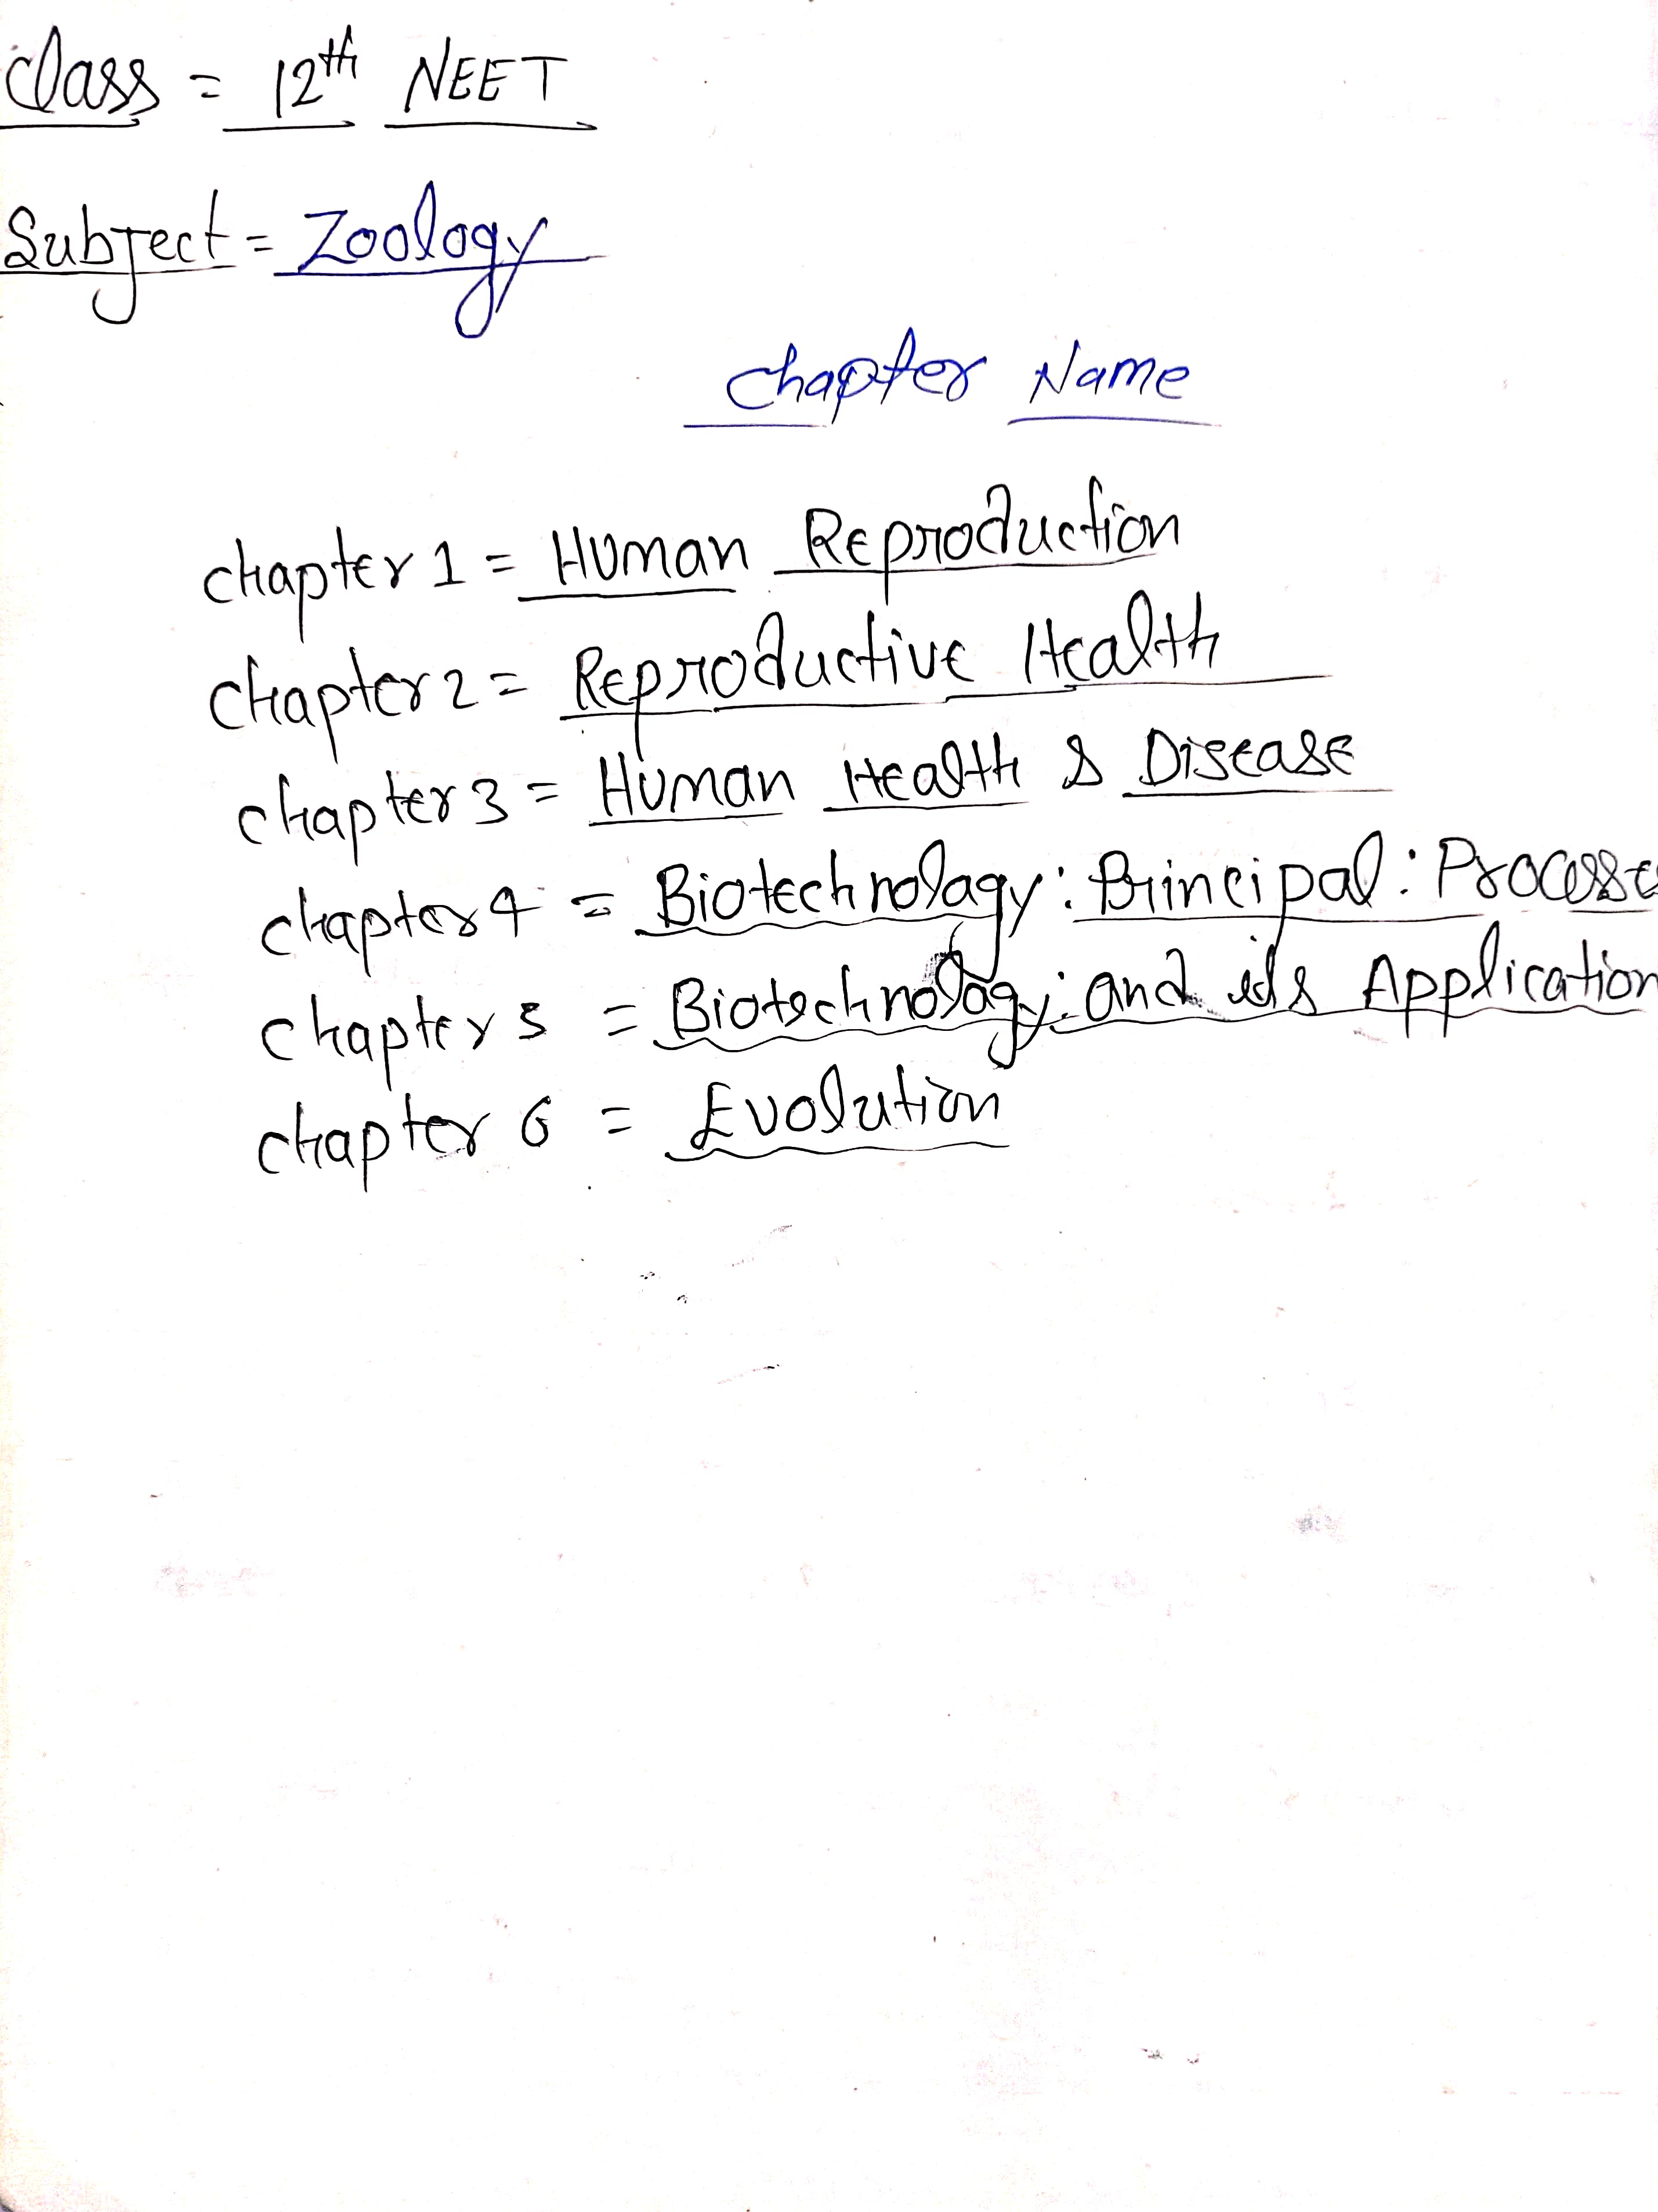 Class = 12th NEET
Subject = Zoology
Chapter Name
chapter 1 = Human Reproduction
chapter 2 = Reproductive Health
chapter 3 = Human Health & Disease
chapter 4 = Biotechnology : Principal : Processe
chapter 5 = Biotechnology : and its Application
chapter 6 = Evolution